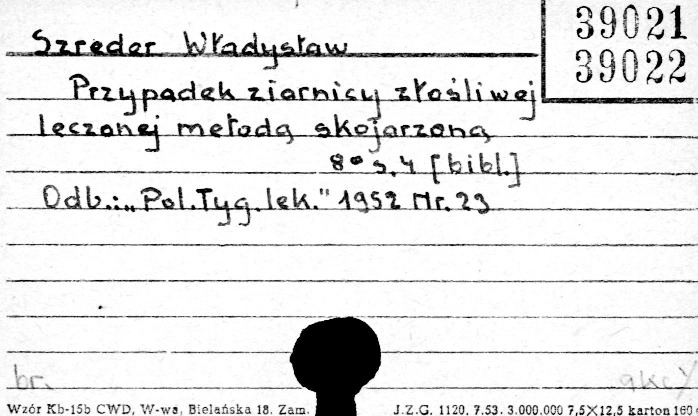 39021
39022
Szreder Władysław
Przypadek ziarnicy złośliwej
leczonej metodą skojarzoną
8° s. 4 [bibl.]
Odb.: „Pol. Tyg. lek." 1952 Nr. 23
br.
Wzór Kb-15b CWD, W-wa, Bielańska 18. Zam. J.Z.G. 1120. 7.53. 3.000.000 7,5X12,5 karton 160